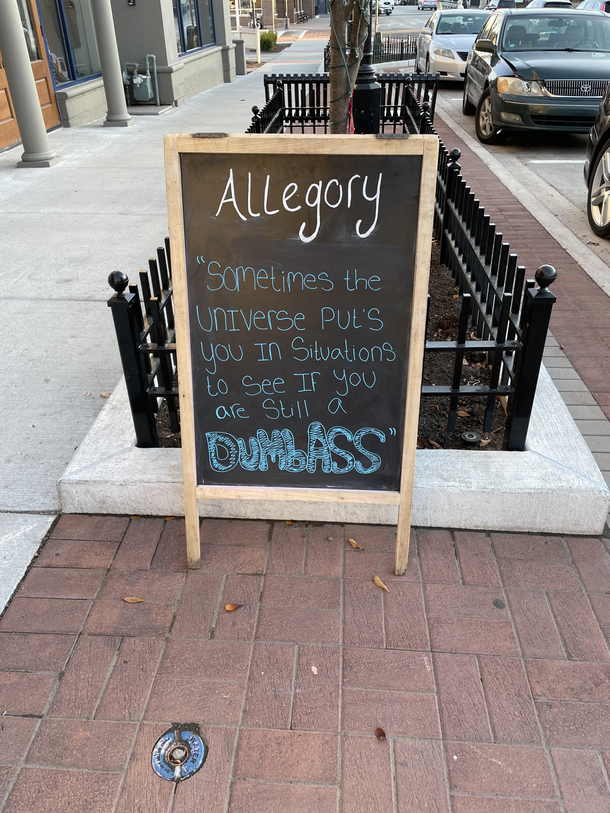 Allegory
"Sometimes the
Universe Put's
you In Situations
to See If you
are Still a
DUMbASS"